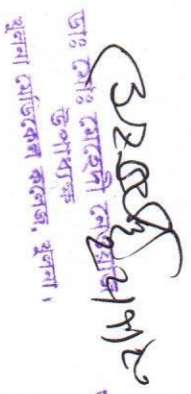 ডাঃ মোঃ মেহেদী নেওয়াজ
উপাধ্যক্ষ
খুলনা মেডিকেল কলেজ, খুলনা।